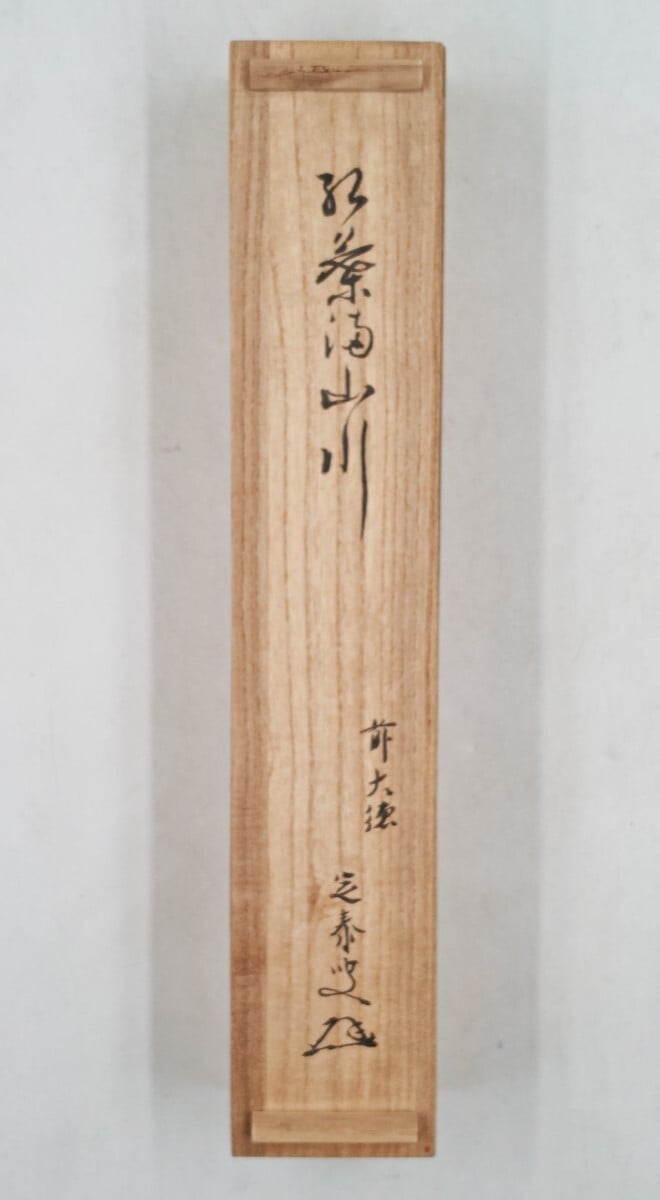 紅葉満山川
前大徳
定泰叟